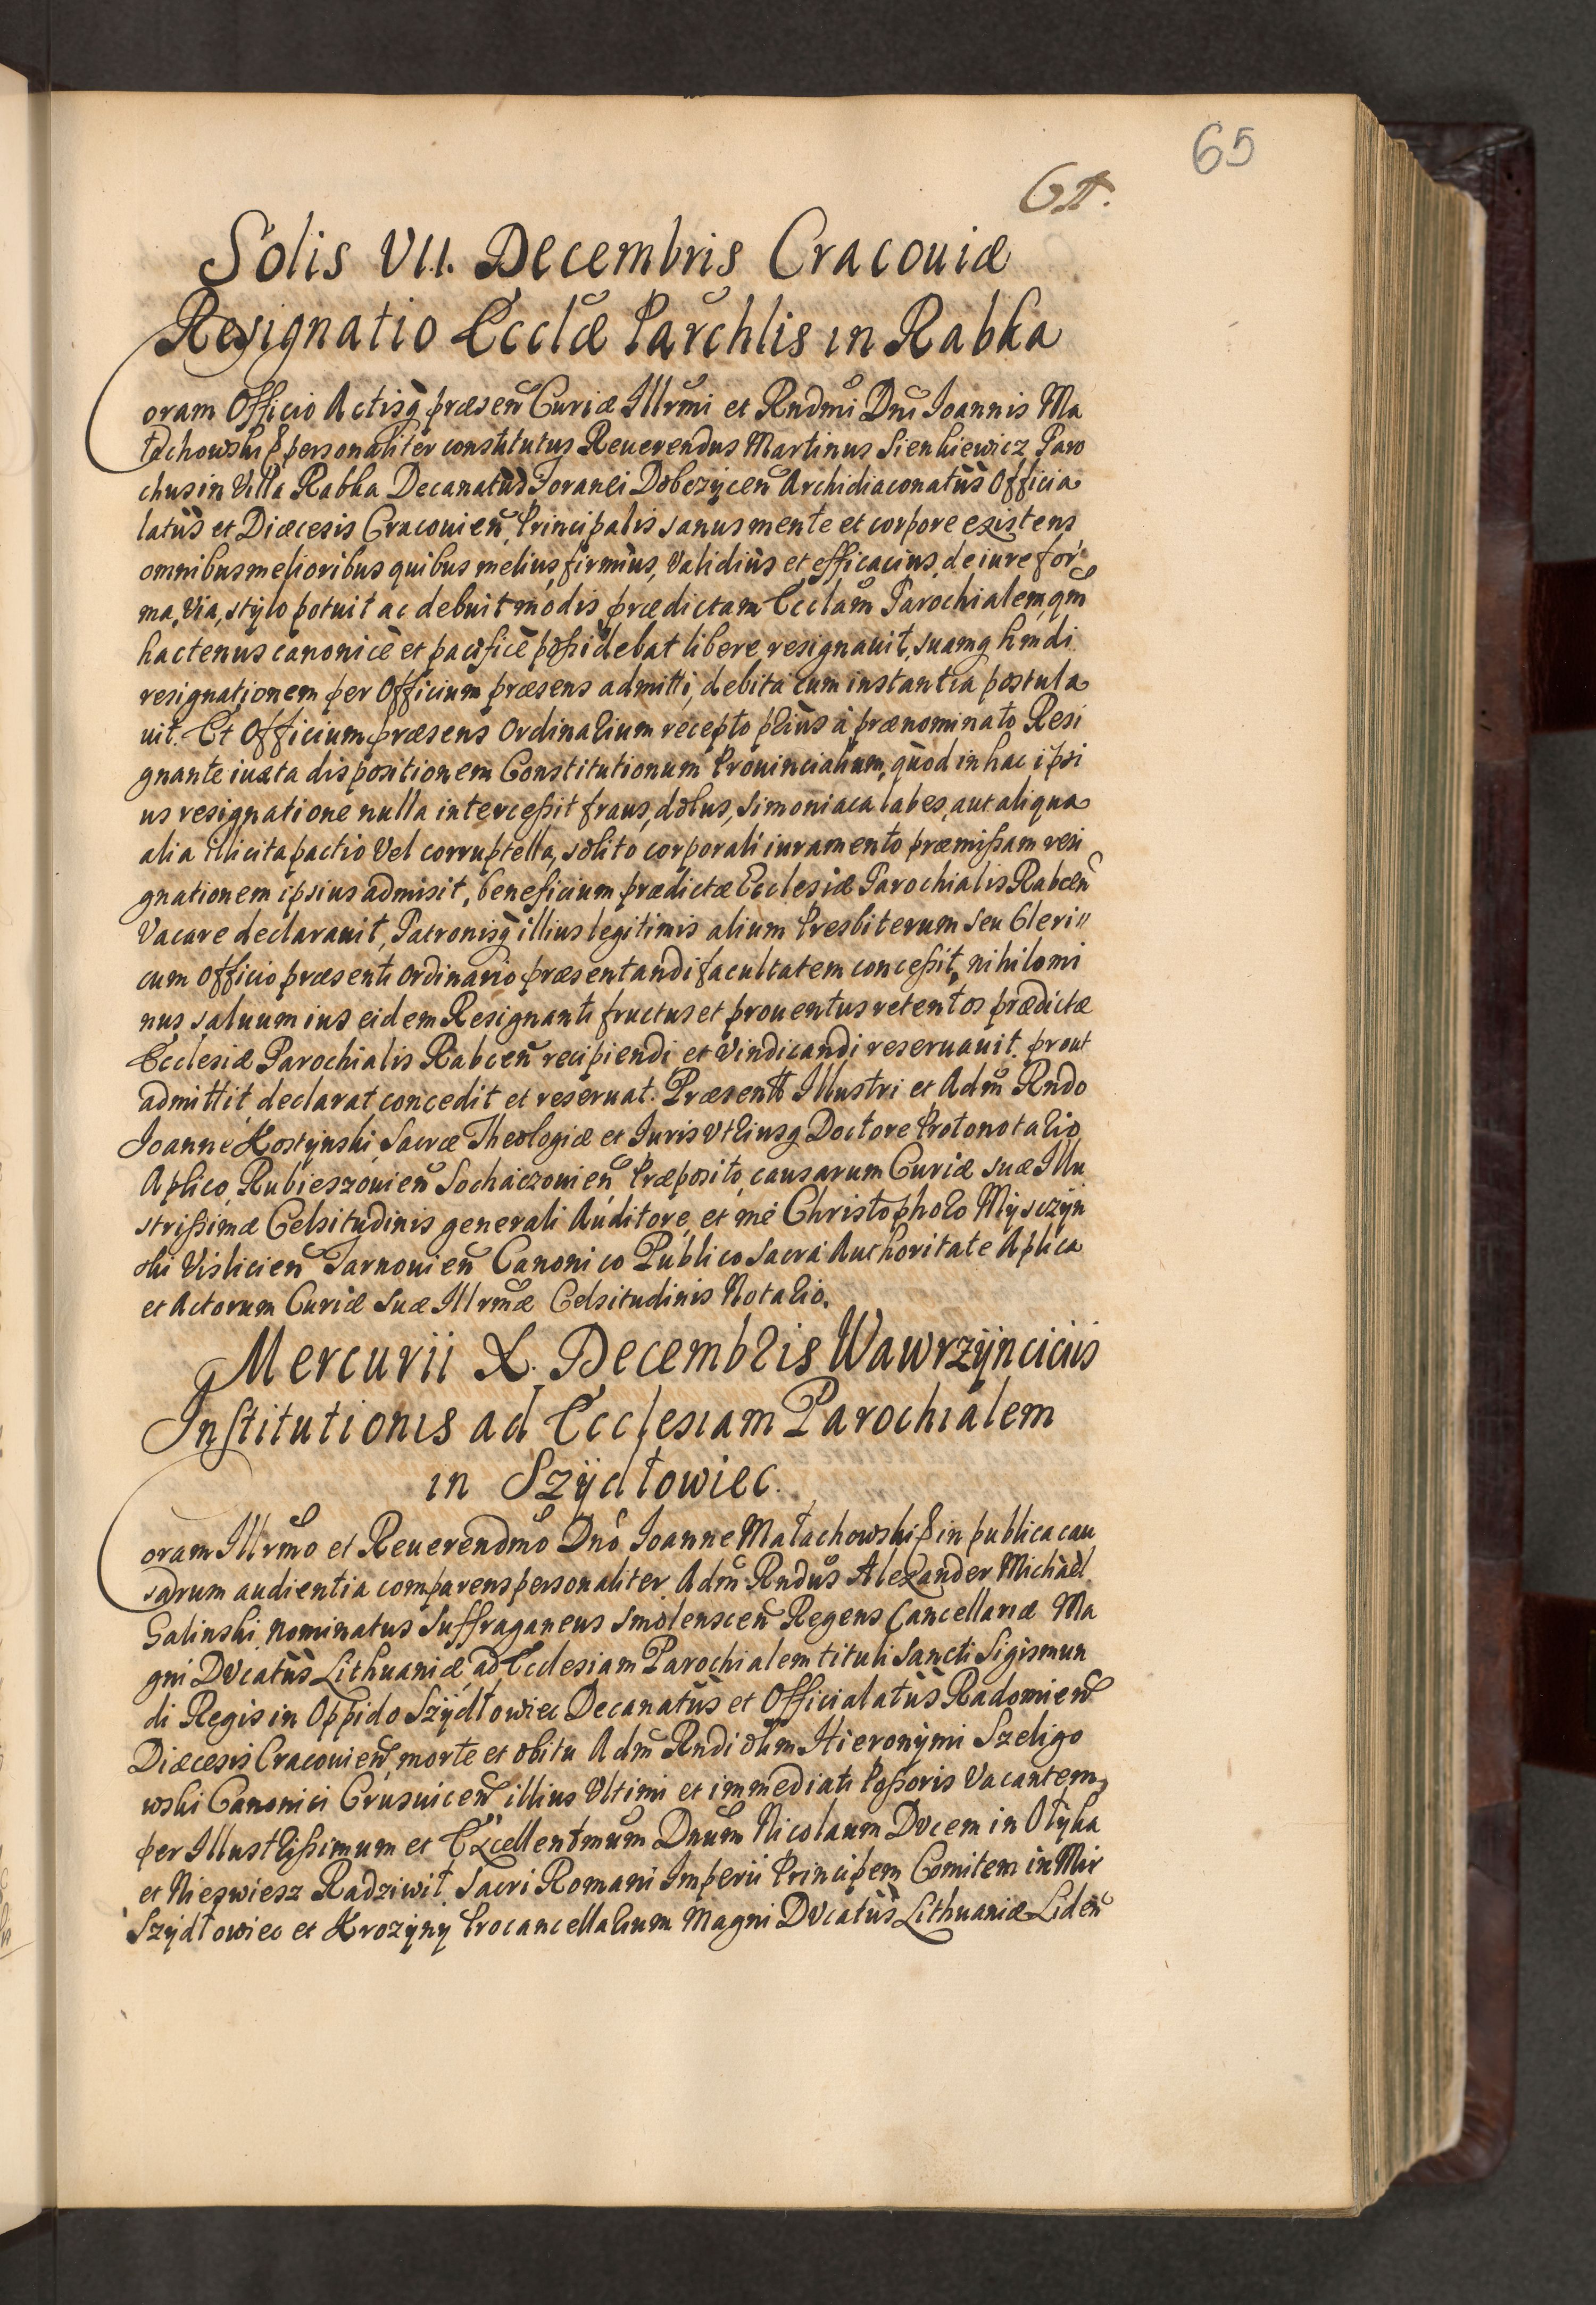 65
Solis VII. Decembris Cracouiæ
Resignatio Ecclæ Parchlis in Rabka
Coram Officio Actisq præsen Curiæ Illrmi et Rndmi Dni Ioannis Ma
łachowski personaliter constitutus Reuerendus Martinus Sienkiewicz Paro
chus in Villa Rabka Decanatus Foranei Dobczÿcen Archidiaconatùs Officia
latùs et Diæcesis Cracouien, Principalis sanus mente et corpore existens
omnibus melioribus quibus melius, firmiùs, validiùs et efficacius, de iure for
ma, via, stÿlo potuit ac debuit modis, prædictam Ecclam Parochialem, qm
hactenus canonicè et pacificè possidebat libere resignauit, suamq hmdi
resignationem per Officium præsens admitti, debita cum instantia postula
uit. Et Officium præsens Ordinarium recepto priùs à prænominato Resi
gnante iuxta dispositionem Constitutionum Prouincialium, quòd in hac ipsi
us resignatione nulla intercessit fraus, dolus, simoniaca labes, aut aliqua
alia illicita pactio vel corruptella, solito corporali iuramento præmissam resi
gnationem ipsius admisit, beneficium prædictæ Ecclesiæ Parochialis Rabcen
Vacare declarauit, Patronisq illius legitimis alium Presbiterum seu Cleri
cum Officio præsenti Ordinario præsentandi facultatem concessit, nihilomi
nus saluum ius eidem Resignanti fructus et prouentus retentos prædictæ
Ecclesiæ Parochialis Rabcen recipiendi et vindicandi reseruauit. prout
admittit declarat, concedit et reseruat. Præsentt Illustri et Adm Rndo
Ioanne Kostÿnski Sacræ Theologiæ et Iuris Vtriusq Doctore Protonotario
Aplico, Rubieszouien Sochaczouien Præposito, causarum Curiæ suæ Illu
strissimæ Celsitudinis generali Auditore, et me Christophoro Mÿsczÿn
ski Vislicien Tarnouien Canonico Publico Sacra Authoritate Aplica
et Actorum Curiæ Suæ Illrmæ Celsitudinis Notario.
Mercurii X. Decembris Wawrzÿnciciis
Institutionis ad Ecclesiam Parochialem
in Szÿdłowiec.
Coram Illrmo et Reuerendmo Dnò Ioanne Małachowski in publica cau
sarum audientia comparens personaliter Adm Rndus Alexander Michael
Galinski Nominatus Suffraganeus Smolenscen Regens Cancellariæ Ma
gni Ducatùs Lithuaniæ, ad Ecclesiam Parochialem tituli Sancti Sigismun
di Regis in Oppido Szÿdłowiec Decanatùs et Officialatùs Radomien
Diæcesis Cracouien, morte et obitu Adm Rndi olim Hieronÿmi Szeligo
wski Canonici Crusuicen illius Vltimi et immediati Possoris Vacantem,
per Illustrissimum et Excellentmum Dnum Nicolaum Ducem in Olÿka
et Nieswiesz Radziwił Sacri Romani Imperii Principem Comitem in Mir
Szÿdłowiec et Krozÿnÿ Procancellarium Magni Ducatùs Lithuaniæ Liden